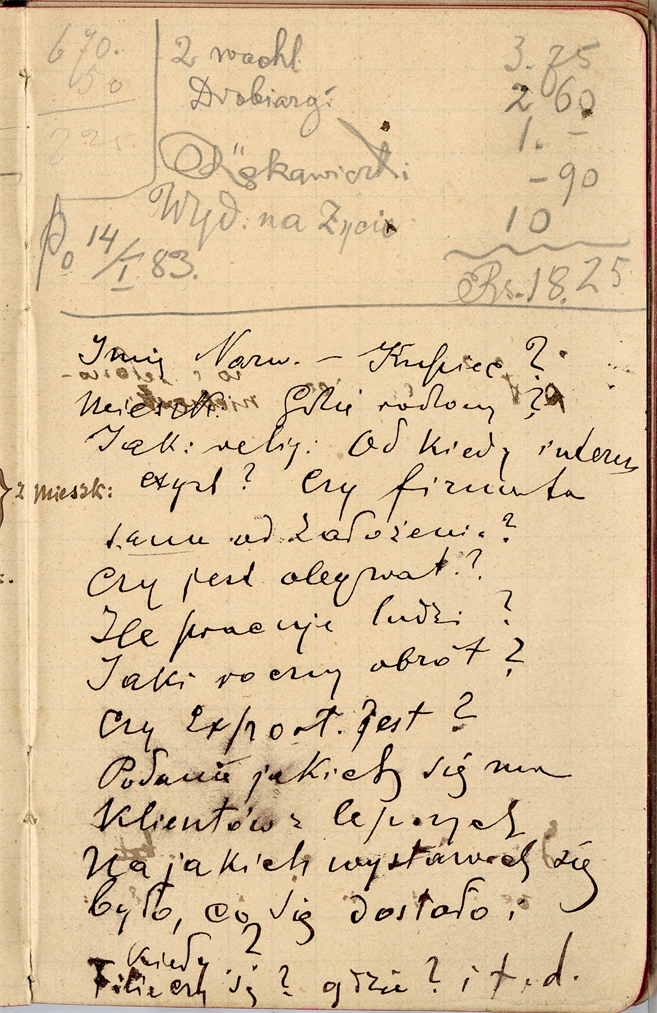 670.
50
2 wachl. 3.75
Drobiazgi 2 60
1. –
Rękawiczki – 90
Wyd. na Życie 10
Po 14/I 83. Rs. 18.25
Imię Nazw. – Kupiec ?
Mieszk. Gdzie rodzony ?
Jak: relig: Od kiedy interes
z mieszk: exyst ? Czy firma ta
sama od założeni. ?
Czy jest obywat. ?
Ile pracuje ludzi ?
Jaki roczny obrót ?
Czy Export. jest ?
Podanie jakich się ma
klientów lepszych
Na jakich wystawach się
było, co się dostało i
kiedy ?
Filie czy są ? gdzie ? i t. d.